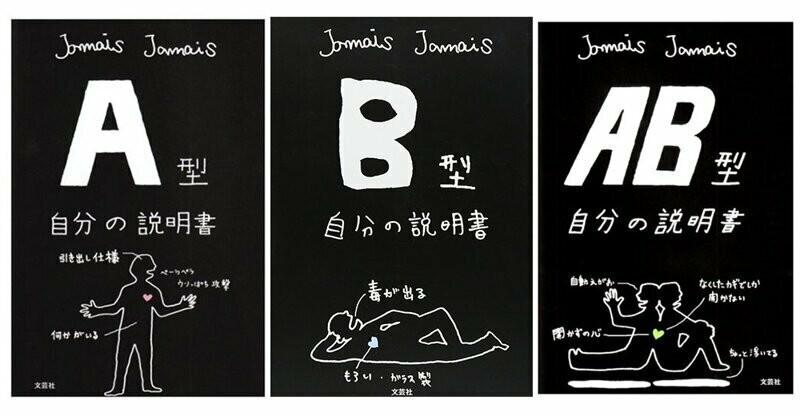 Jamais Jamais
A型
自分の説明書
引き出し仕様
ペーラペラ
ウソっぱち攻撃
何かがいる
文芸社
Jamais Jamais
B型
自分の説明書
毒が出る
もろい・ガラス製
文芸社
Jamais Jamais
AB型
自分の説明書
自動えがお
なくしたカギでしか
開かない
開かずの心
ちょっと浮いてる
文芸社